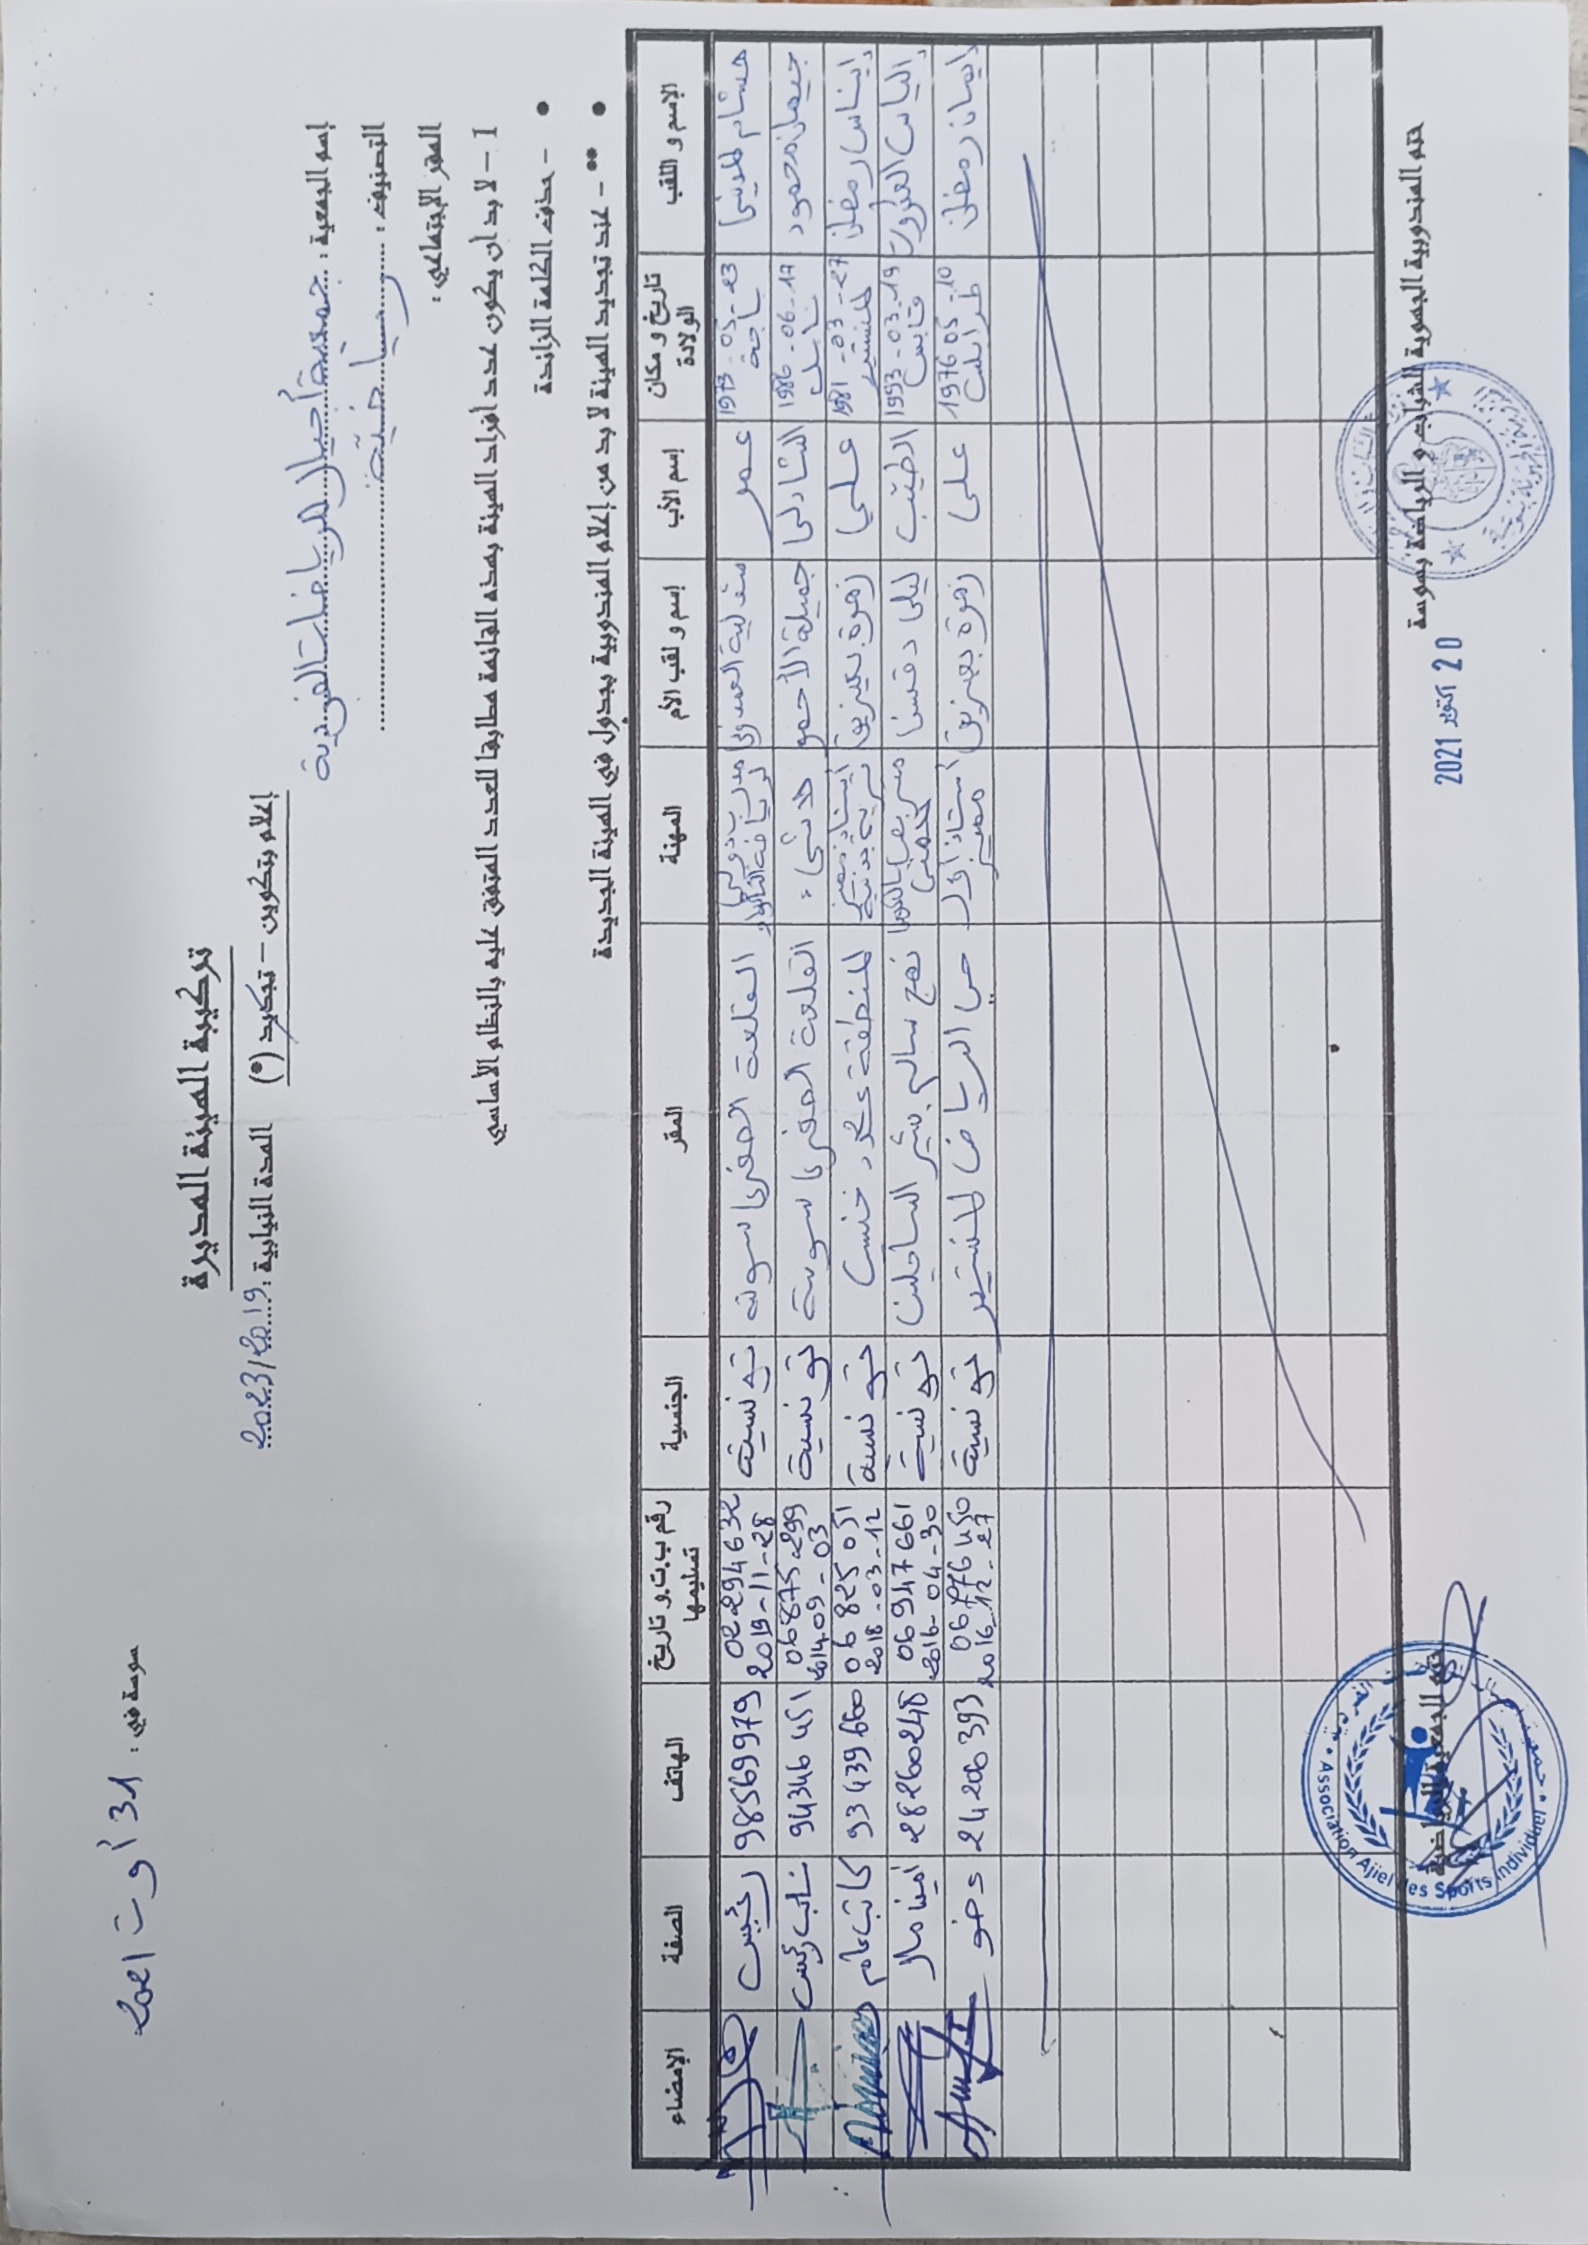 سوسة في : 31 أوت 2021
تركيبة الهيئة المديرة
إعلام بتكوين – تجديد (*) المدة النيابية : 2023/2019
إسم الجمعية : جمعية أجيال للرياضات الفردية
التصنيف : رياضية
المقر الإجتماعي :
1 – لا بد أن يكون عدد أفراد الهيئة بهذه القائمة مطابقا للعدد المتفق عليه بالنظام الأساسي
• - حذف الكلمة الزائدة
• ** - عند تجديد الهيئة لا بد من إعلام المندوبية بجدول في الهيئة الجديدة
الإسم و اللقب | تاريخ و مكان الولادة | إسم الأب | إسم و لقب الأم | المهنة | المقر | الجنسية | رقم ب.ت.و تاريخ تسليمها | الهاتف | الصفة | الإمضاء
هشام | 1973-05-23 باجة | عمر | القلعة الصغرى سوسة | تونسية | 02294632 2019-11-28 | 98569979 | رئيس
جيهان محمود | 1986-06-17 | الشاذلي | جميلة الأحمر | القلعة الصغرى سوسة | تونسية | 06875299 2014-09-03 | 94346451 | نائب رئيس
إيناس رمضان | 1981-03-27 المنستير | علي | زهرة | أستاذ مميز تربية بدنية | المنطقة عدد خنيس | تونسية | 06825051 2018-03-12 | 93439660 | كاتب عام
إلياس | 1993-03-19 قابس | الطيب | ليلى | نهج سالم بشير الساحلين | تونسية | 06947661 2016-04-30 | 28260248 | أمين مال
إيمان رمضان | 1976 05-10 طرابلس | علي | زهرة | أستاذ أول مميز | حي الرياض المنستير | تونسية | 06776450 2016-12-27 | 24206393 | عضو
ختم المندوبية الجهوية للشباب و الرياضة بسوسة
20 أكتوبر 2021
ختم الجمعية الرياضية
Association Ajiel des Sports Individuel